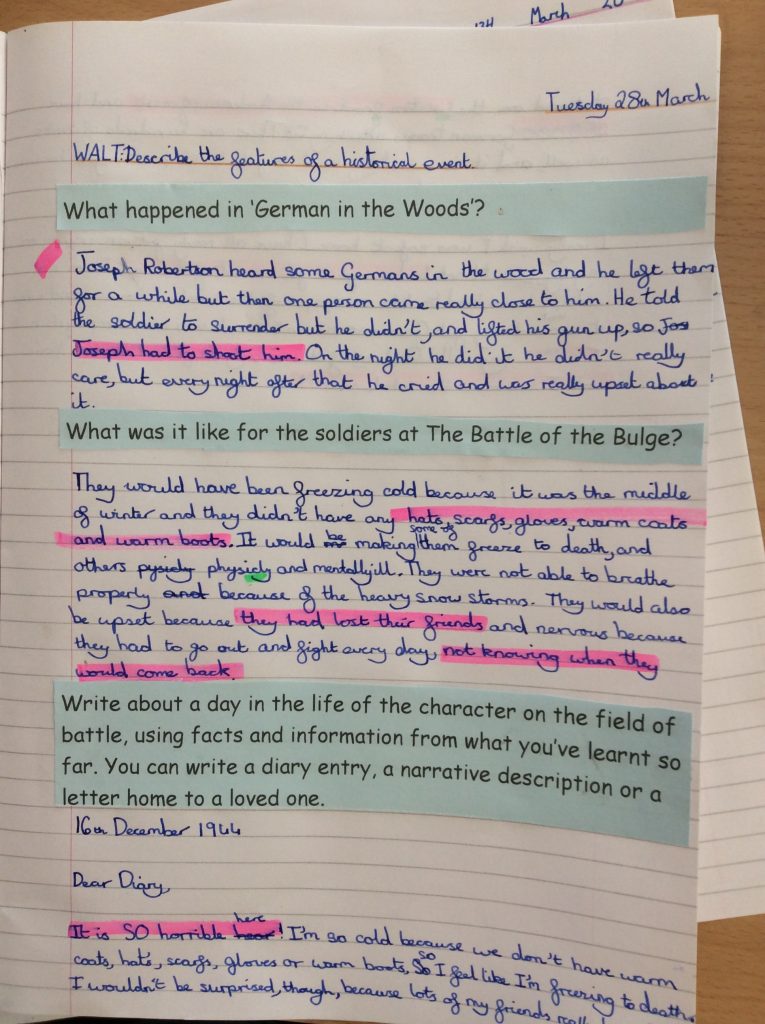 March 20
Tuesday 28th March
WALT: Describe the features of a historical event.
What happened in 'German in the Woods'?
Joseph Robertson heard some Germans in the wood and he left them
for a while but then one person came really close to him. He told
the soldier to surrender but he didn't, and lifted his gun up, so Jos
Joseph had to shoot him. On the night he did it he didn't really
care, but every night after that he cried and was really upset about
it.
What was it like for the soldiers at The Battle of the Bulge?
They would have been freezing cold because it was the middle
of winter and they didn't have any hats, scarfs, gloves, warm coats
and warm boots. It would be making some of them freeze to death, and
others pysicly physicly and mentally ill. They were not able to breathe
properly and because of the heavy snow storms. They would also
be upset because they had lost their friends and nervous because
they had to go out and fight every day, not knowing when they
would come back.
Write about a day in the life of the character on the field of
battle, using facts and information from what you've learnt so
far. You can write a diary entry, a narrative description or a
letter home to a loved one.
16th December 1944
Dear Diary,
It is SO horrible hear here! I'm so cold because we don't have warm
coats, hats, scarfs, gloves or warm boots, So so I feel like I'm freezing to death.
I wouldn't be surprised, though, because lots of my friends